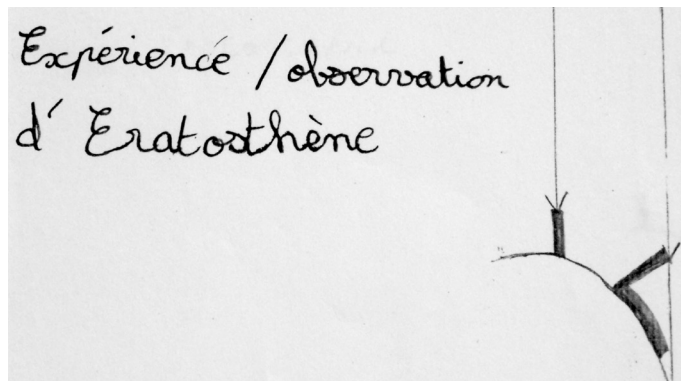 Expérience / observation
d' Eratosthène